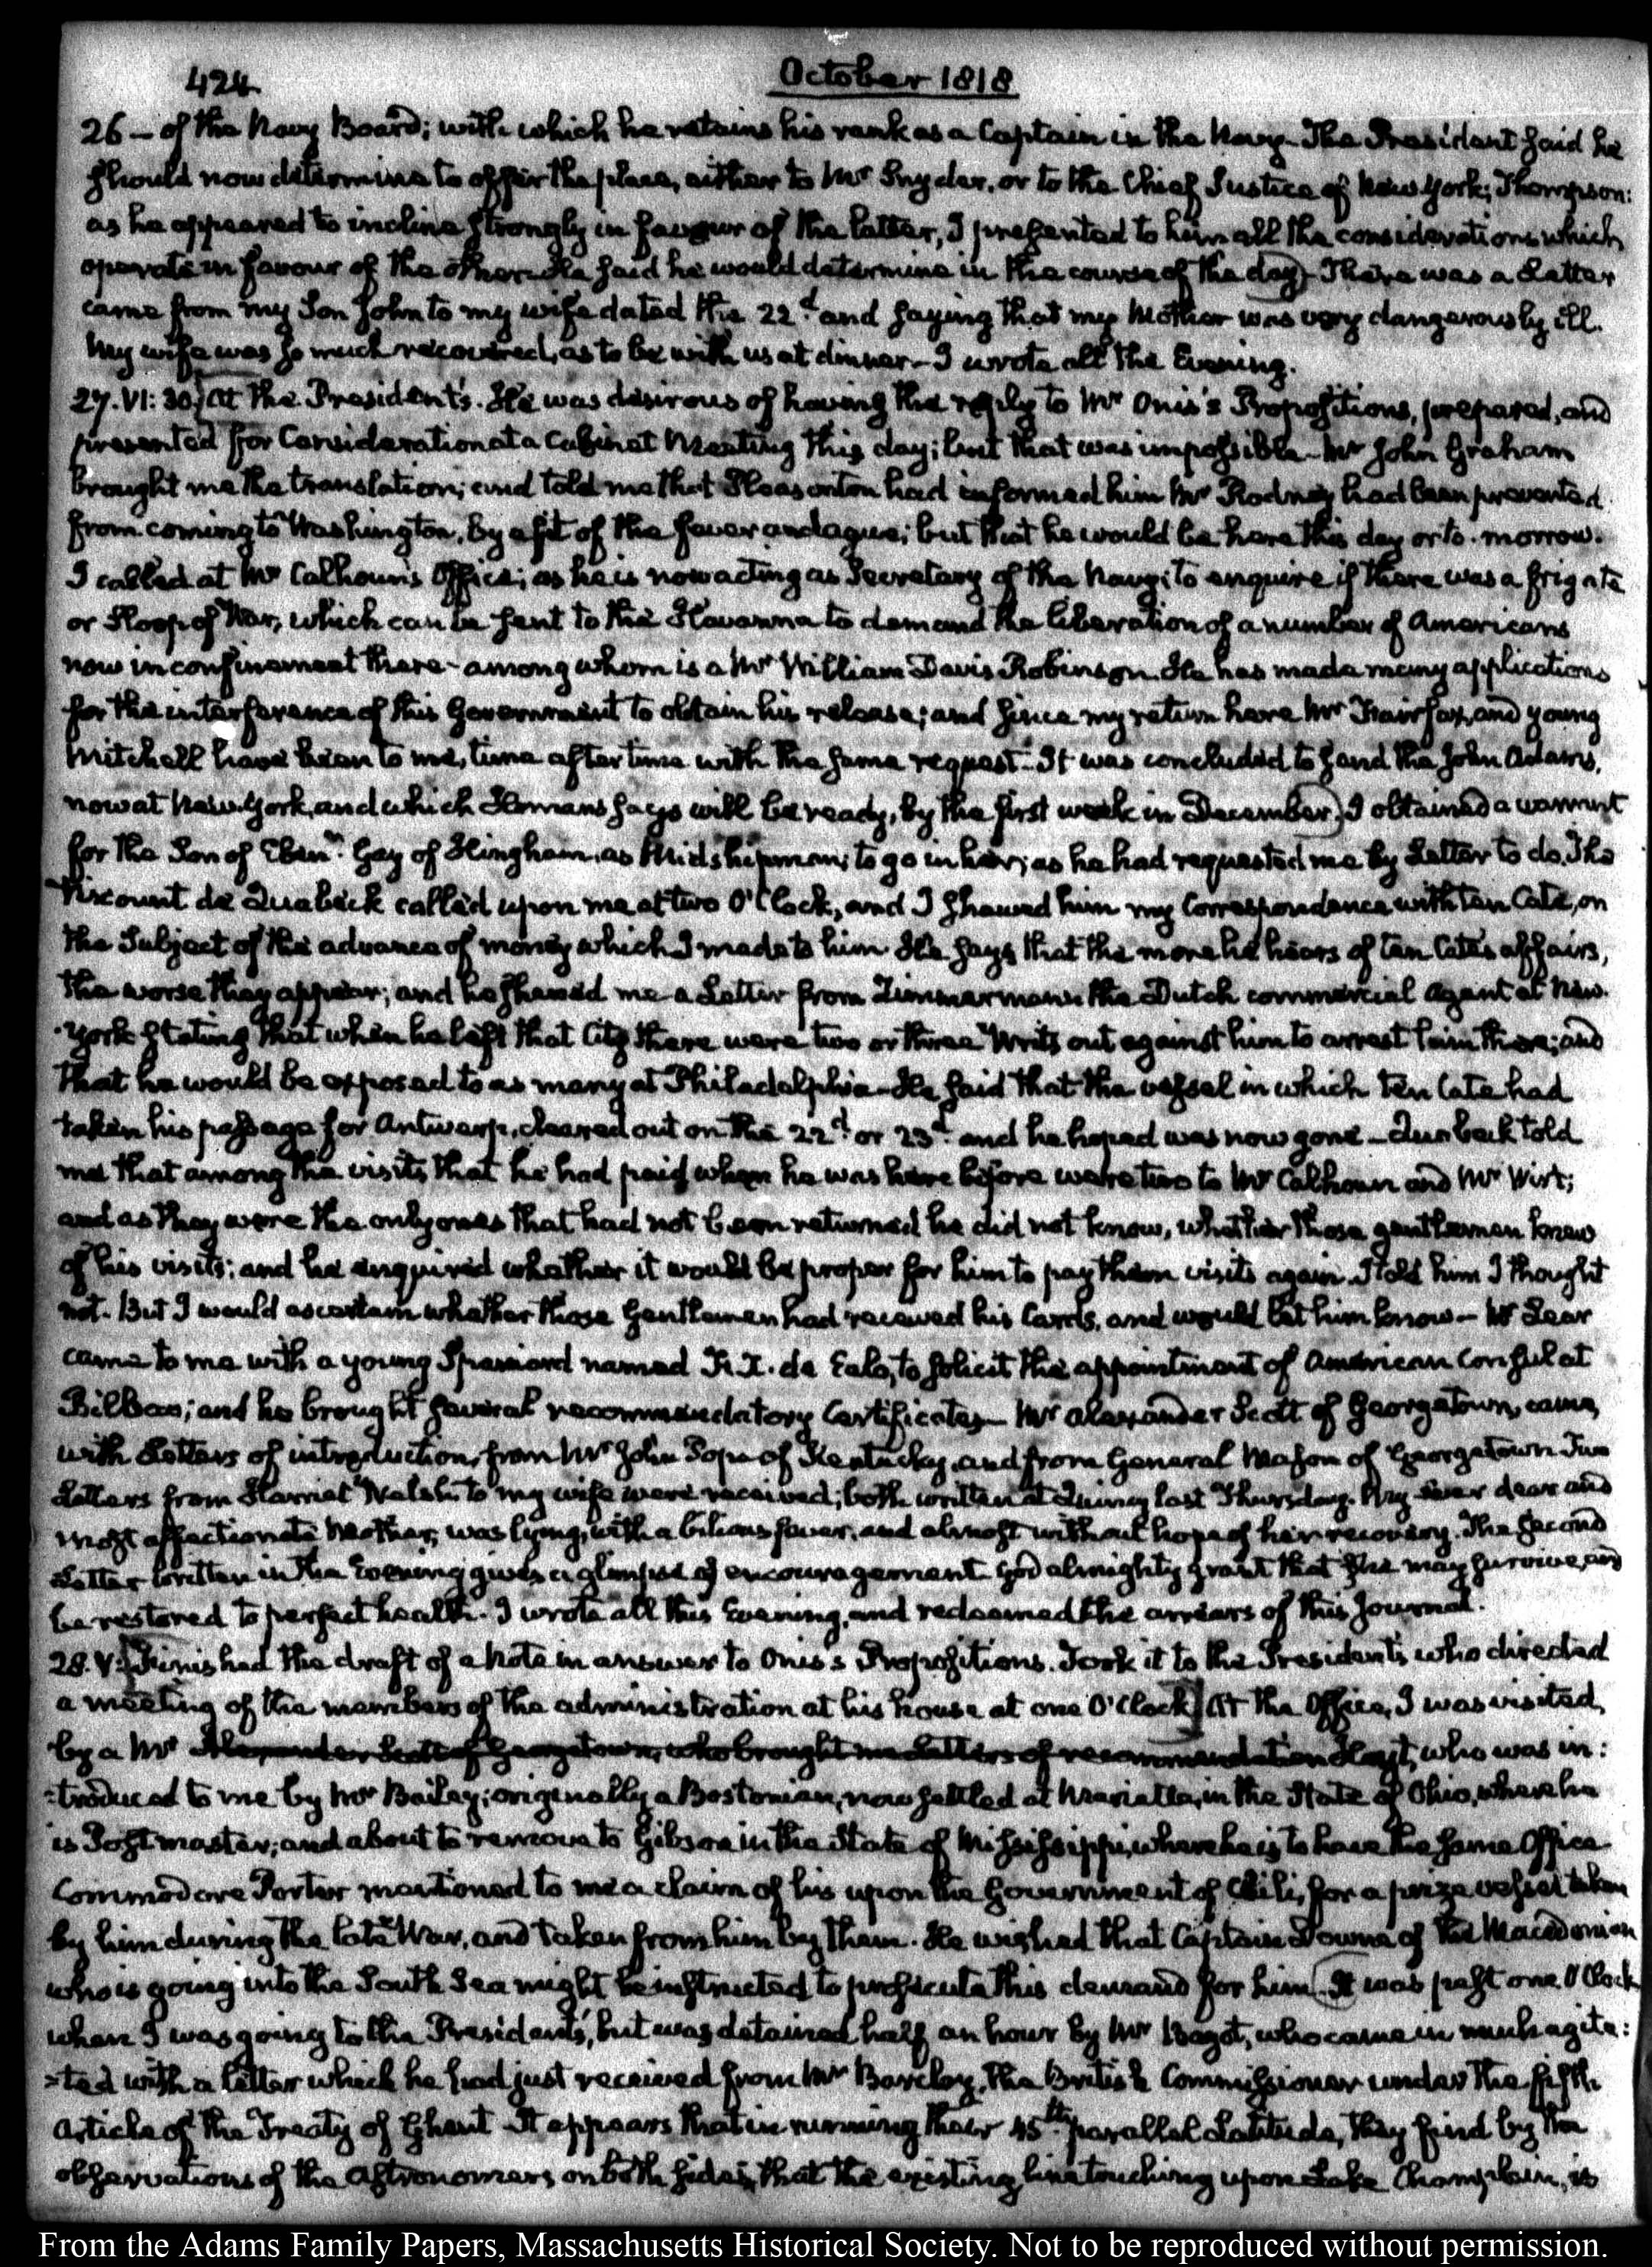 424
October 1818
26 — of the Navy Board; with which he retains his rank as a Captain in the Navy — The President said he
should now determine to offer the place, either to Mr Snyder, or to the Chief Justice of New York; Thompson:
as he appeared to incline strongly in favour of the latter, I presented to him all the considerations which
operate in favour of the other — He said he would determine in the course of the day) There was a Letter
came from my Son John to my wife dated the 22d and saying that my Mother was very dangerously ill.
My wife was so much recovered, as to be with us at dinner — I wrote all the Evening.
27. VI: 30. [At the President's. He was desirous of having the reply to Mr Onis's Propositions, prepared, and
presented for Consideration at a Cabinet Meeting this day; but that was impossible — Mr John Graham
brought me the translation; and told me that Pleasonton had informed him Mr Rodney had been prevented
from coming to Washington, by a fit of the fever and ague; but that he would be here this day or to-morrow.
I called at Mr Calhoun's Office; as he is now acting as Secretary of the Navy; to enquire if there was a frigate
or Sloop of War, which can be sent to the Havanna to demand the liberation of a number of Americans
now in confinement there — among whom is a Mr William Davis Robinson. He has made many applications
for the interference of this Government to obtain his release; and since my return here Mr Fairfax, and young
Mitchell have been to me, time after time with the same request — It was concluded to send the John Adams,
now at New York, and which Homans says will be ready, by the first week in December.) I obtained a warrant
for the Son of Ebenr. Gay of Hingham, as Midshipman; to go in her; as he had requested me by Letter to do. The
Viscount de Quabeck called upon me at two O'Clock, and I shewed him my Correspondence with ten Cate, on
the Subject of the advance of money which I made to him. He says that the more he hears of ten Cate's affairs,
the worse they appear; and he shewed me a Letter from Zimmermann the Dutch commercial Agent at New-
-York stating that when he left that City there were two or three Writs out against him to arrest him there; and
that he would be exposed to as many at Philadelphia — He said that the vessel in which ten Cate had
taken his passage for Antwerp, cleared out on the 22d. or 23d. and he hoped was now gone — Quabeck told
me that among the visits that he had paid when he was here before were two to Mr Calhoun and Mr Wirt;
and as they were the only ones that had not been returned he did not know, whether those gentlemen knew
of his visits; and he enquired whether it would be proper for him to pay them visits again. I told him I thought
not. But I would ascertain whether those Gentlemen had received his Cards, and would let him know — Mr Lear
came to me with a young Spaniard named de Ealo, to solicit the appointment of American Consul at
Bilbao; and he brought several recommendatory Certificates — Mr Alexander Scott of Georgetown, came,
with Letters of introduction, from Mr John Pope of Kentucky, and from General Mason of Georgetown Two
Letters from Harriet Welsh to my wife were received; both written at Quincy last Thursday. My ever dear and
most affectionate Mother, was lying, with a bilious fever, and almost without hope of her recovery. The second
Letter written in the Evening gives a glimpse of encouragement God almighty grant that she may survive, and
be restored to perfect health. I wrote all this Evening, and redeemed the arrears of this Journal.
28. V: [Finished the draft of a Note in answer to Onis's Propositions. Took it to the President's who directed
a meeting of the members of the administration at his house at one O'Clock] At the Office, I was visited,
by a Mr Alexander Scott of Georgetown, who brought me Letters of recommendation Hoyt, who was in:
:troduced to me by Mr Bailey; originally a Bostonian, now settled at Marietta, in the State of Ohio, where he
is Postmaster; and about to remove to Gibson in the State of Mississippi, where he is to have the same Office
Commodore Porter mentioned to me a claim of his upon the Government of Chili, for a prize vessel taken
by him during the late War, and taken from him by them. He wished that Captain Downe of the Macedonian
who is going into the South Sea might be instructed to prosecute this demand for him. (It was past one O'Clock
when I was going to the President's, but was detained half an hour by Mr Bagot, who came in much agita:
:ted with a letter which he had just received from Mr Barclay, the British Commissioner under the fifth
Article of the Treaty of Ghent — It appears that in running their 45th. parallel Latitude, they find by the
observations of the Astronomers on both sides, that the existing line touching upon Lake Champlain, is
From the Adams Family Papers, Massachusetts Historical Society. Not to be reproduced without permission.